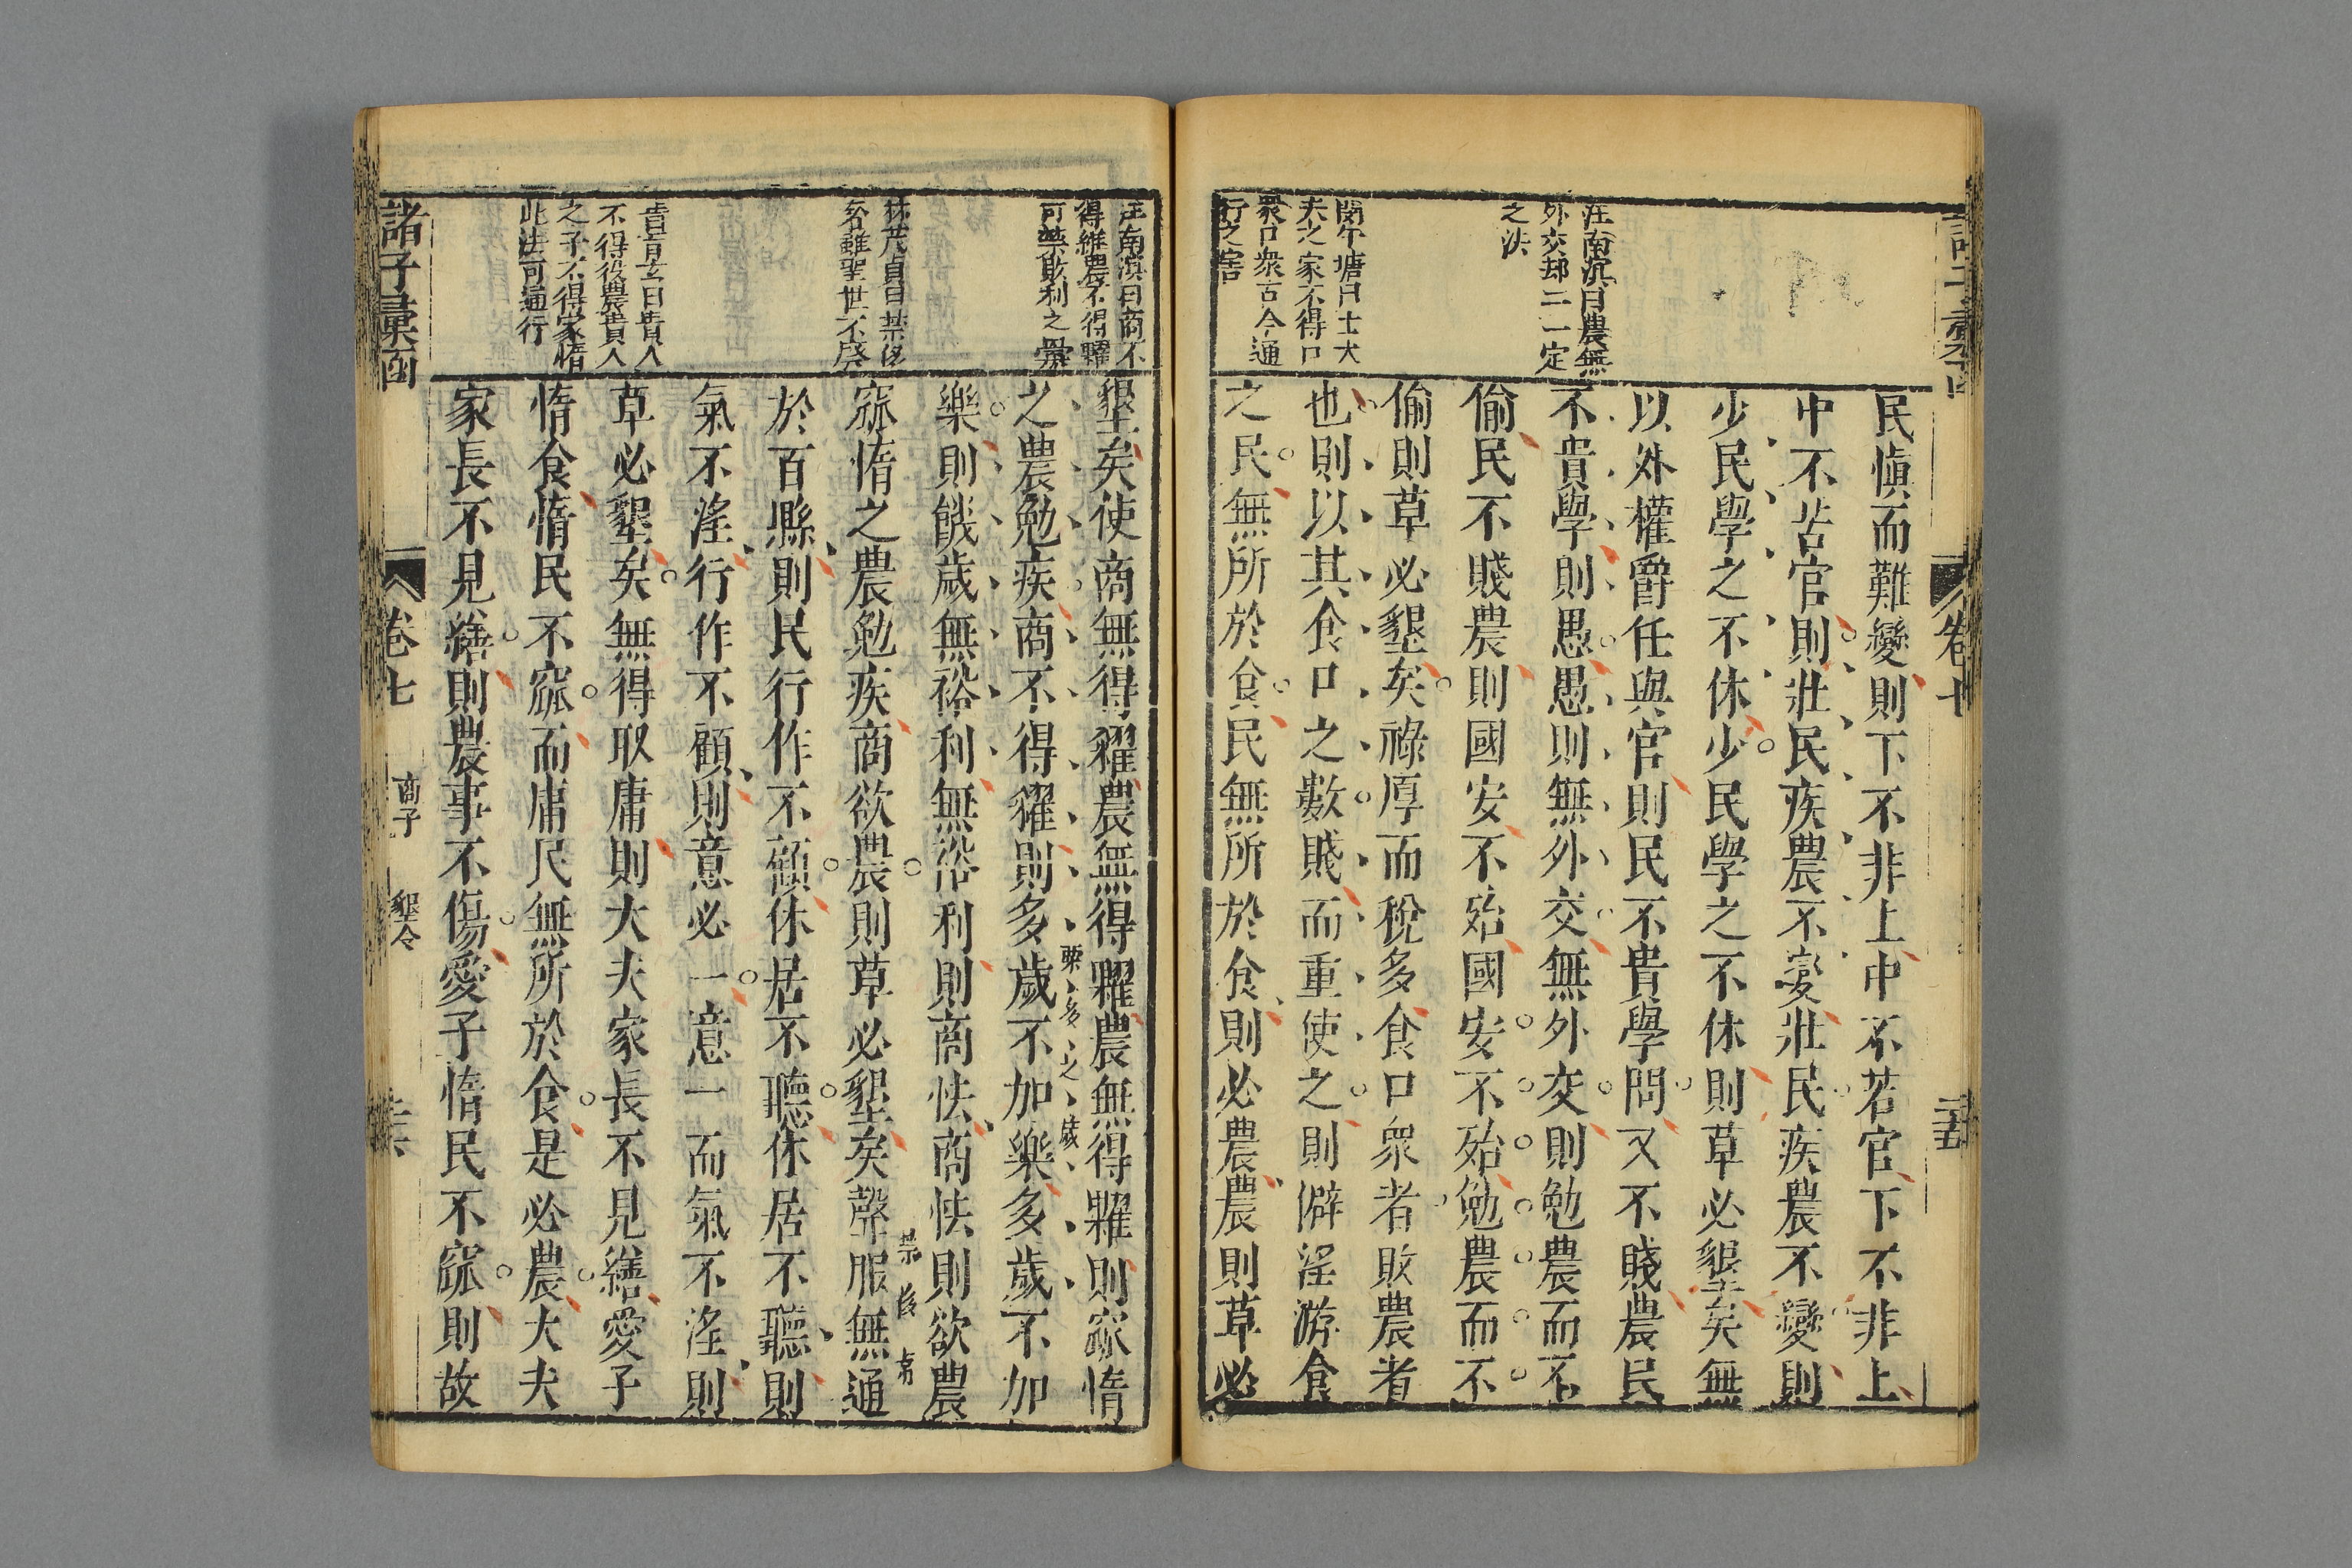 汪南溟曰農無
外交却二一定
之法
閔午塘曰士大
夫之家不得口
衆口衆古今通
行之害
民慎而難變則下不非上中不若官下不非上
中不苦官則壯民疾農不變壯民疾農不變則
少民學之不休少民學之不休則草必墾矣無
以外權爵任與官則民不貴學問又不賤農民
不貴學則愚愚則無外交無外交則勉農而不
偷民不賤農則國安不殆國安不殆勉農而不
偷則草必墾矣祿厚而稅多食口衆者敗農者
也則以其食口之數賤而重使之則僻淫游食
之民無所於食民無所於食則必農農則草必
卷七
汪南溟曰商不
得糴農不得糶
可禁欺利之弊
林茂貞曰禁侈
奢雖聖世不廢
肯玄曰貴人
不得役農貴人
之子不得家惰
此法可通行
墾矣使商無得糴農無得糶農無得糶則窳惰
之農勉疾商不得糴則多歲不加樂多歲不加
歲多之
樂則饑歲無裕利無裕利則商怯商怯則欲農
窳惰之農勉疾商欲農則草必墾矣聲服無通
禁侈奢
於百縣則民行作不顧休居不聽休居不聽則
氣不淫行作不顧則意必一意一而氣不淫則
草必墾矣無得取庸則大夫家長不見繕愛子
惰食惰民不窳而庸民無所於食是必農大夫
家長不見繕則農事不傷愛子惰民不窳則故
諸子彙函
卷七
商子
墾令